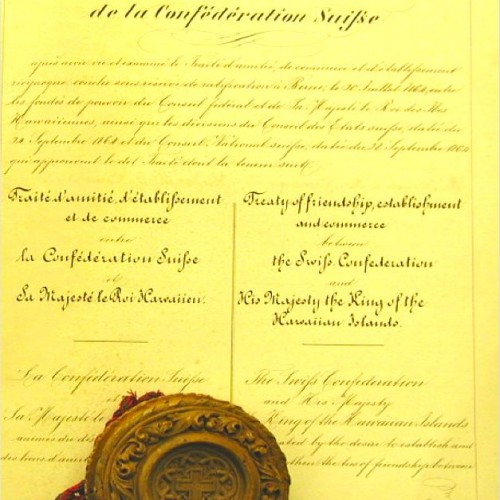 de la Confédération Suisse
après avoir vu et examiné le Traité d'amitié, de commerce et d'établissement
réciproque, conclu sous réserve de ratification à Berne, le 20 Juillet 1864, entre
les fondés de pouvoir du Conseil fédéral et de Sa Majesté le Roi des Iles
Hawaiiennes, ainsi que les décisions du Conseil des Etats suisse, datée du
Septembre 1864 et du Conseil National suisse, datée du 28 Septembre 1864
qui approuvent le dit Traité dont la teneur suit:
Traité d'amitié, d'établissement
et de commerce
entre
la Confédération Suisse
et
Sa Majesté le Roi Hawaiien.
La Confédération Suisse
et
Sa Majesté le
animés du dés
des liens d'amiti
Treaty of friendship, establishment
and commerce
between
the Swiss Confederation
and
His Majesty the King of the
Hawaiian Islands.
The Swiss Confederation
and His Majesty
King of the Hawaiian Islands
ated by the desire to establish and
then the ties of friendship between